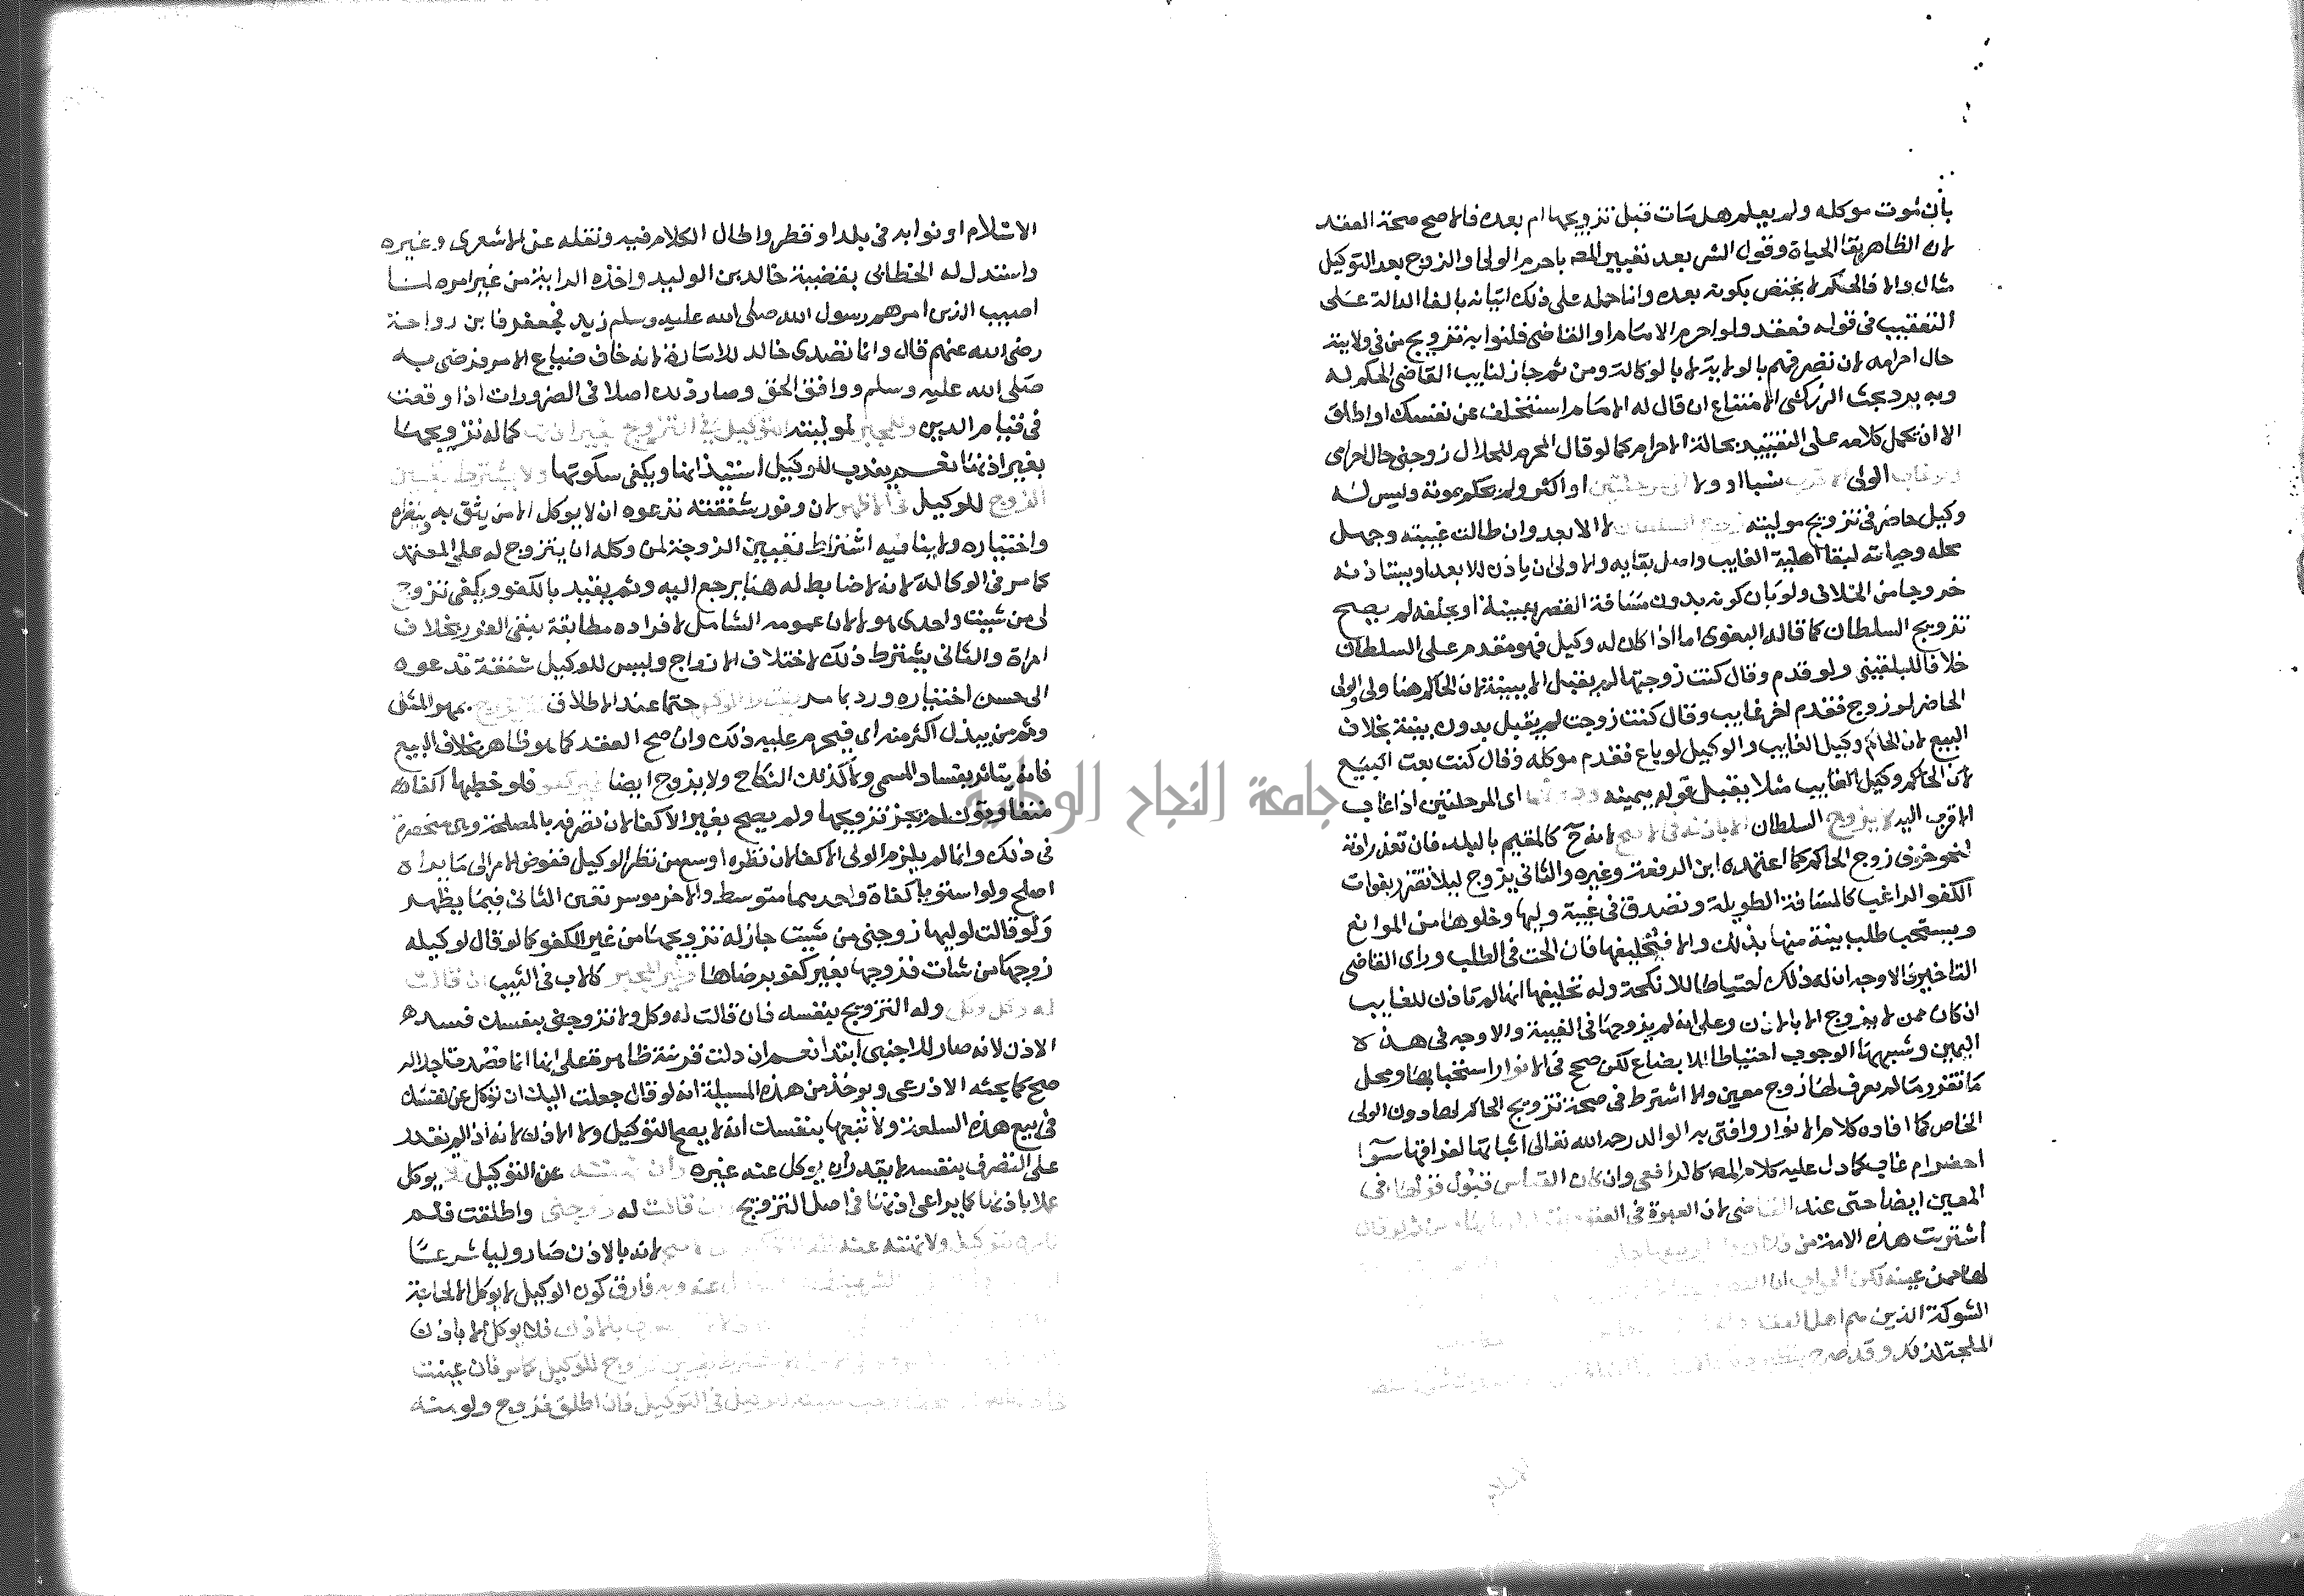 بأن موت موكله ولم يعلم هل مات قبل تزويجها ام بعده فالاصح صحة العقد
لان الظاهر بقا الحياة وقول الش بعد تغيير المص باحرم الولى والزوج بعد التوكيل
مثال والا فالحكم لا يختص بكونه بعده وانما حمله على ذلك اتيانه بالفا الدالة على
التعقيب فى قوله فعقد ولو احرم الامام او القاضى فلنوابه تزويج من فى ولايته
حال احرامه لان تصرفهم بالولاية لا بالوكالة ومن ثم جاز لنايب القاضى الحكم له
وبه يرد بحث الزركشى الامتناع ان قال له الامام استخلف عن نفسك او اطلق
الا ان يحمل كلامه على التقييد بحالة الاحرام كما لو قال المحرم للحلال زوجنى حال احرامى
ولو غاب الولى الاقرب نسبا او ولا الى مرحلتين او اكثر ولم يحكم بموته وليس له
وكيل حاضر فى تزويج موليته زوج السلطان لا الابعد وان طالت غيبته وجهل
محله وحياته لبقا اهلية الغايب واصل بقايه والاولى ان ياذن للابعد او يستاذنه
خروجا من الخلاف ولو بان كونه بدون مسافة القصر ببينة او بحلفه لم يصح
تزويج السلطان كما قاله البغوى اما اذا كان له وكيل فهو مقدم على السلطان
خلافا للبلقينى ولو قدم وقال كنت زوجتها لم يقبل الا ببينة لان الحاكم هنا ولى والولى
الحاضر لو زوج فقدم اخر غايب وقال كنت زوجت لم يقبل بدون بينة بخلاف
البيع لان الحاكم وكيل الغايب والوكيل لو باع فقدم موكله وقال كنت بعت البيع
لان الحاكم وكيل الغايب مثلا يقبل قوله بيمينه ودونهما اى المرحلتين اذا غاب
الاقرب اليه لا يزوج السلطان الا باذنه فى الاصح لانه ح كالمقيم بالبلد فان تعذر اذنه
لنحو خوف زوج الحاكم كما اعتمده ابن الرفعة وغيره والثانى يزوج ليلا تتضرر بفوات
الكفو الراغب كالمسافة الطويلة وتصدق فى غيبة وليها وخلوها من الموانع
ويستحب طلب بينة منها بذلك والا فتحليفها فان الحت فى الطلب وراى القاضى
التاخير فالاوجه ان له ذلك احتياطا للانكحة وله تحليفها انها لم تاذن للغايب
ان كان ممن لا يزوج الا بالاذن وعلى انه لم يزوجها فى الغيبة والاوجه فى هذه لا
اليمين وشبهها الوجوب احتياطا للابضاع لكن صحح فى الانوار استحبابها ومحل
ما تقرر ما لم يعرف لها زوج معين والا اشترط فى صحة تزويج الحاكم لها دون الولى
الخاص كما افاده كلام الانوار وافتى به الوالد رحمه الله تعالى اثباتها لفراقها سوآ
احضر ام غاب كما دل عليه كلام المص كالرافعى وان كان القياس قبول قولها فى
المعين ايضا حتى عند القاضى لان العبرة فى العقود
اشتريت هذه الامة من فلان
لها ممن عينه لكن الجواب ان
الشوكة الذين هم اهل العقد
الملجئة لذلك وقد صرح
الاسلام
الاسلام او نوابه فى بلد او قطر واطال الكلام فيه ونقله عن الاشعرى وغيره
واستدل له الخطابى بقضية خالد بن الوليد واخذه الراية من غير امره لما
اصيب الذين امرهم رسول الله صلى الله عليه وسلم زيد فجعفر فابن رواحة
رضى الله عنهم قال وانما تصدى خالد للامارة لانه خاف ضياع الامر فرضى به
صلى الله عليه وسلم ووافق الحق وصار ذلك اصلا فى الضرورات اذا وقعت
فى قيام الدين وللمجبر لموليته التوكيل فى التزويج بغير اذنها كما له تزويجها
بغير اذنها نعم يندب للوكيل استيذانها ويكفى سكوتها ولا يشترط تعيين
الزوج للوكيل فى الاظهر لان وفور شفقته تدعوه ان لا يوكل الا من يثق به وبنظره
واختباره ولا ينافيه اشتراط تعيين الزوجة لمن وكله ان يتزوج له على المعتمد
كما مر فى الوكالة لانه لا ضابط له هنا يرجع اليه وثم يقيد بالكفو ويكفى تزوج
لى من شيت واحدى هولا لان عمومه الشامل لافراده مطابقة ينفى الغرر بخلاف
امراة والثانى يشترط ذلك لاختلاف الازواج وليس للوكيل شفقة تدعوه
الى حسن اختياره ورد بما مر حتما عند الاطلاق فلا يزوج بمهر المثل
وثم من يبذل اكثر منه اى فيحرم عليه ذلك وان صح العقد كما هو ظاهر بخلاف البيع
فانه يتاثر بفساد المسمى ولا كذلك النكاح ولا يزوج ايضا غير كفو فلو خطبها اكفاء
متفاوتون لم يجز تزويجها ولم يصح بغير الاكفا لان تصرفه بالمصلحة وهى منحصرة
فى ذلك وانما لم يلزم الولى الاكفا لان نظره اوسع من نظر الوكيل ففوض الامر الى ما يراه
اصلح ولو استويا كفاة واحدهما متوسط والاخر موسر تعين الثانى فيما يظهر
ولو قالت لوليها زوجنى من شيت جاز له تزويجها من غير الكفو كما لو قال لوكيله
زوجها من شات فزوجها بغير كفو برضاها وغير المجبر كالاب فى الثيب ان قالت
له وكل وكل وله التزويج بنفسه فان قالت له وكل ولا تزوجنى بنفسك فسد
الاذن لانه صار للاجنبى ابتدا نعم ان دلت قرينة ظاهرة على انها انما قصدت اجلاله
صح كما بحثه الاذرعى ويوخذ من هذه المسيلة انه لو قال جعلت اليك ان توكل عن نفسك
فى بيع هذه السلعة ولا تبعها بنفسك انه لا يصح التوكيل ولا الاذن لانه اذا لم يقدر
على التصرف بنفسه لا يقدر ان يوكل عنه غيره وان نهته عن التوكيل فلا يوكل
عملا باذنها كما يراعى اذنها فى اصل التزويج وان قالت له زوجنى واطلقت فلم
تامره بتوكيل ولا نهته عنه فله التوكيل فى الاصح لانه بالاذن صار وليا شرعا
عنه وبه فارق كون الوكيل لا يوكل الا لحاجة
بلا اذن فلا يوكل الا باذن
تعيين زوج للوكيل كما مر فان عينت
للوكيل فى التوكيل فان اطلق فزوج ولو منه
جامعة النجاح الوطنية